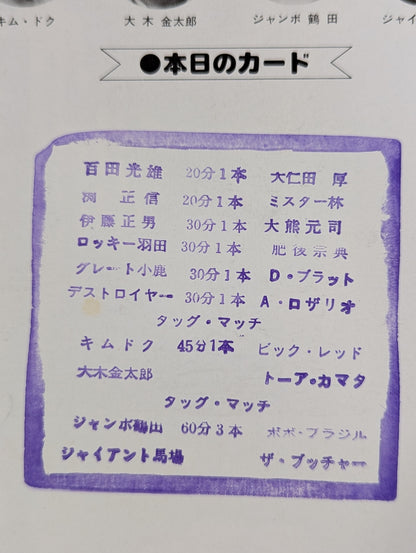 キム・ドク 大木金太郎 ジャンボ鶴田 ジャイ
●本日のカード
百田光雄 20分1本 大仁田厚
渕正信 20分1本 ミスター林
伊藤正男 30分1本 大熊元司
ロッキー羽田 30分1本 肥後宗典
グレート小鹿 30分1本 D・ブラット
デストロイヤー 30分1本 A・ロザリオ
タッグ・マッチ
キムドク 45分1本 ビック・レッド
大木金太郎 トーア・カマタ
タッグ・マッチ
ジャンボ鶴田 60分3本 ボボ・ブラジル
ジャイアント馬場 ザ・ブッチャー